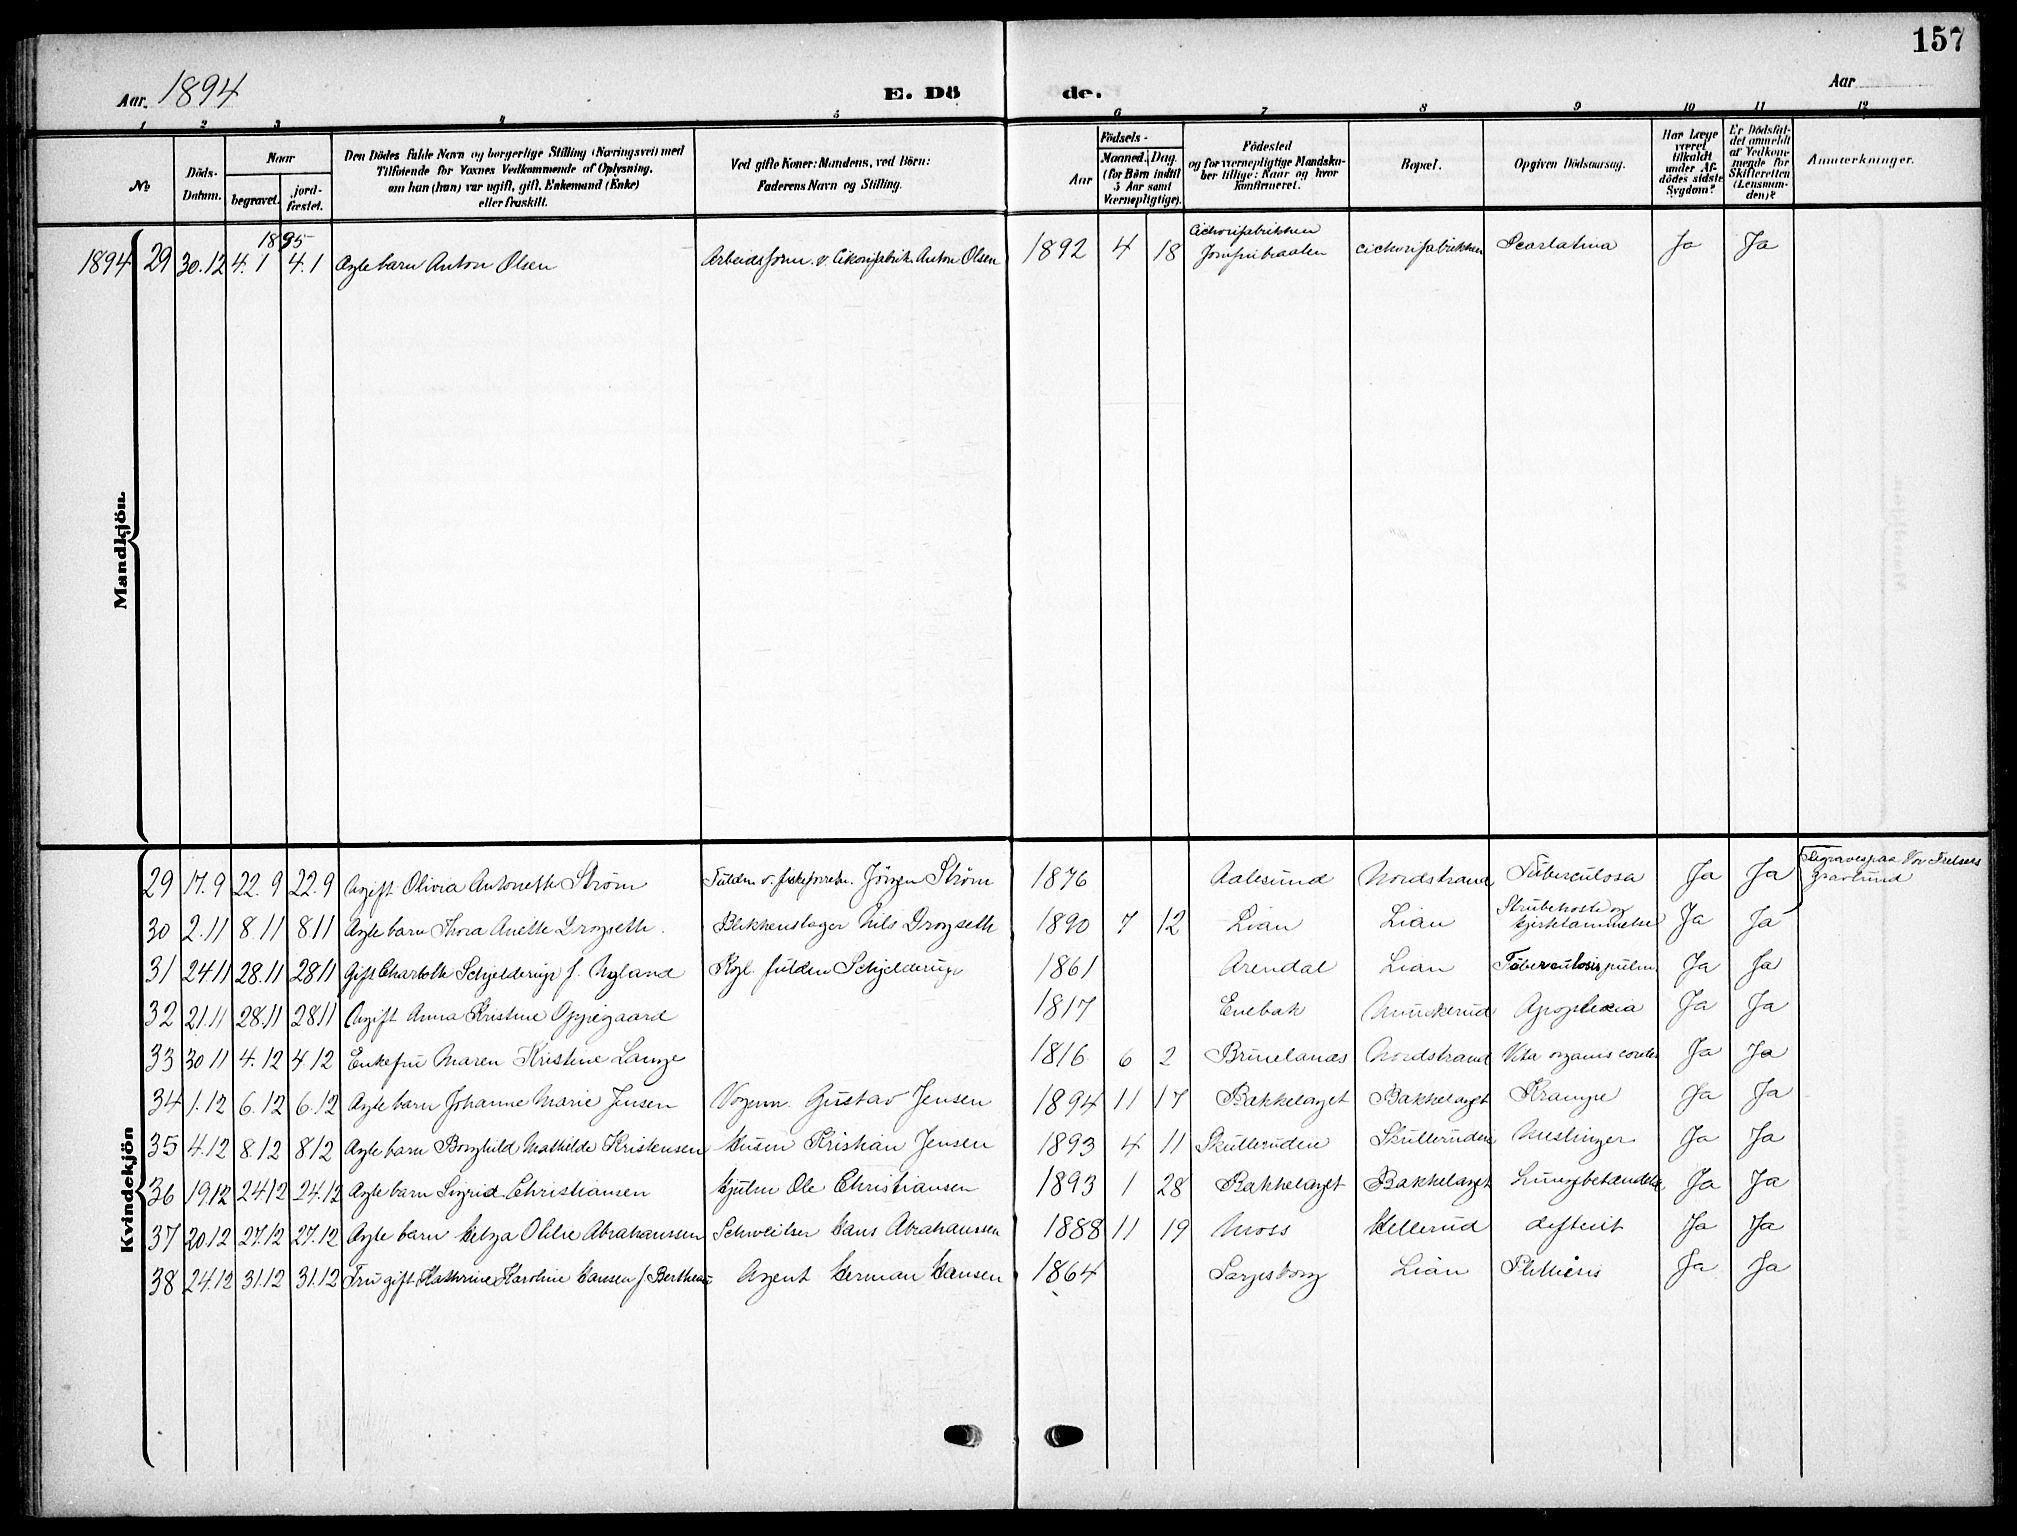 157
Aar. 1894
E. Dö de.
Aar
1 2 3 4 5 6 7 8 9 10 11 12
No
Döds-Datum.
Naar
begravet.
jord-fæstet.
Den Dödes fulde Navn og borgerlige Stilling (Næringsvei) med
Tilföiende for Voxnes Vedkommende af Oplysning,
om han (hun) var ugift, gift, Enkemand (Enke)
eller fraskilt.
Ved gifte Koner: Mandens, ved Börn:
Faderens Navn og Stilling.
Födsels-
Aar
Maaned. Dag
(for Börn indtil
5 Aar samt
Værnepligtige).
Födested
og for værnepligtige Mandska-
ber tillige: Naar og hvor
konfirmeret.
Bopæl.
Opgiven Dödsaarsag.
Har Læge
været
tilkaldt
under Af-
dödes sidste
Sygdom?
Er Dödsfal-
det anmeldt
af Vedkom-
mende for
Skifteretten
(Lensman-
den)?
Anmærkninger.
Mandkjön.
1895
1894 29 30.12 4.1 4.1 Ægte barn Anton Olsen Arbeidsform. v. Cikorifabrik. Anton Olsen 1892 4 18 Cichorifabrikken Jomfrubraaten Cichorifabrikken Scarlatina Ja Ja
Kvindekjön
29 17.9 22.9 22.9 Ugift Olivia Antonette Strøm Fuldm. v. fiskeforretn. Jörgen Strøm 1876 Aalesund Nordstrand Tuberculosa Ja Ja Begraves paa Vor Frelsers Gravlund
30 2.11 8.11 8.11 Ægte barn Thora Anette Drogseth. Blikkenslager Nils Drogseth 1890 7 12 Lian Lian Strubehoste og hjertelammelse Ja Ja
31 24.11 28.11 28.11 Gift Charlotte Schjelderup f. Nyland Kgl. fuldm Schjelderup 1861 Arendal Lian Tuberculosis pulm Ja Ja
32 21.11 28.11 28.11 Ugift Anna Kristine Oppegaard 1817 Enebak Munkerud Apoplexia Ja Ja
33 30.11 4.12 4.12 Enkefru Maren Kristine Lange 1816 6 2 Brunelanæs Nordstrand Vita organis cordis Ja Ja
34 1.12 6.12 6.12 Ægte barn Johanne Marie Jensen Vognm. Gustav Jensen 1894 11 17 Bækkelaget Bækkelaget Krampe Ja Ja
35 4.12 8.12 8.12 Ægte barn Borghild Mathilde Kristensen Husm Kristian Jensen 1893 4 11 Skulleruden Skulleruden Meslinger Ja Ja
36 19.12 24.12 24.12 Ægte barn Sigrid Christiansen Hjulm Ole Christiansen 1893 1 28 Bækkelaget Bækkelaget Lungebetændelse Ja Ja
37 20.12 27.12 27.12 Ægte barn Helga Otilie Abrahamssen Schweitser Hans Abrahamssen 1888 11 19 Moss Hellerud difterit Ja Ja
38 24.12 31.12 31.12 Fru gift Kathrine Karoline Hansen f. Bertheau Agent Herman Hansen 1864 Sarpsborg Lian Ja Ja